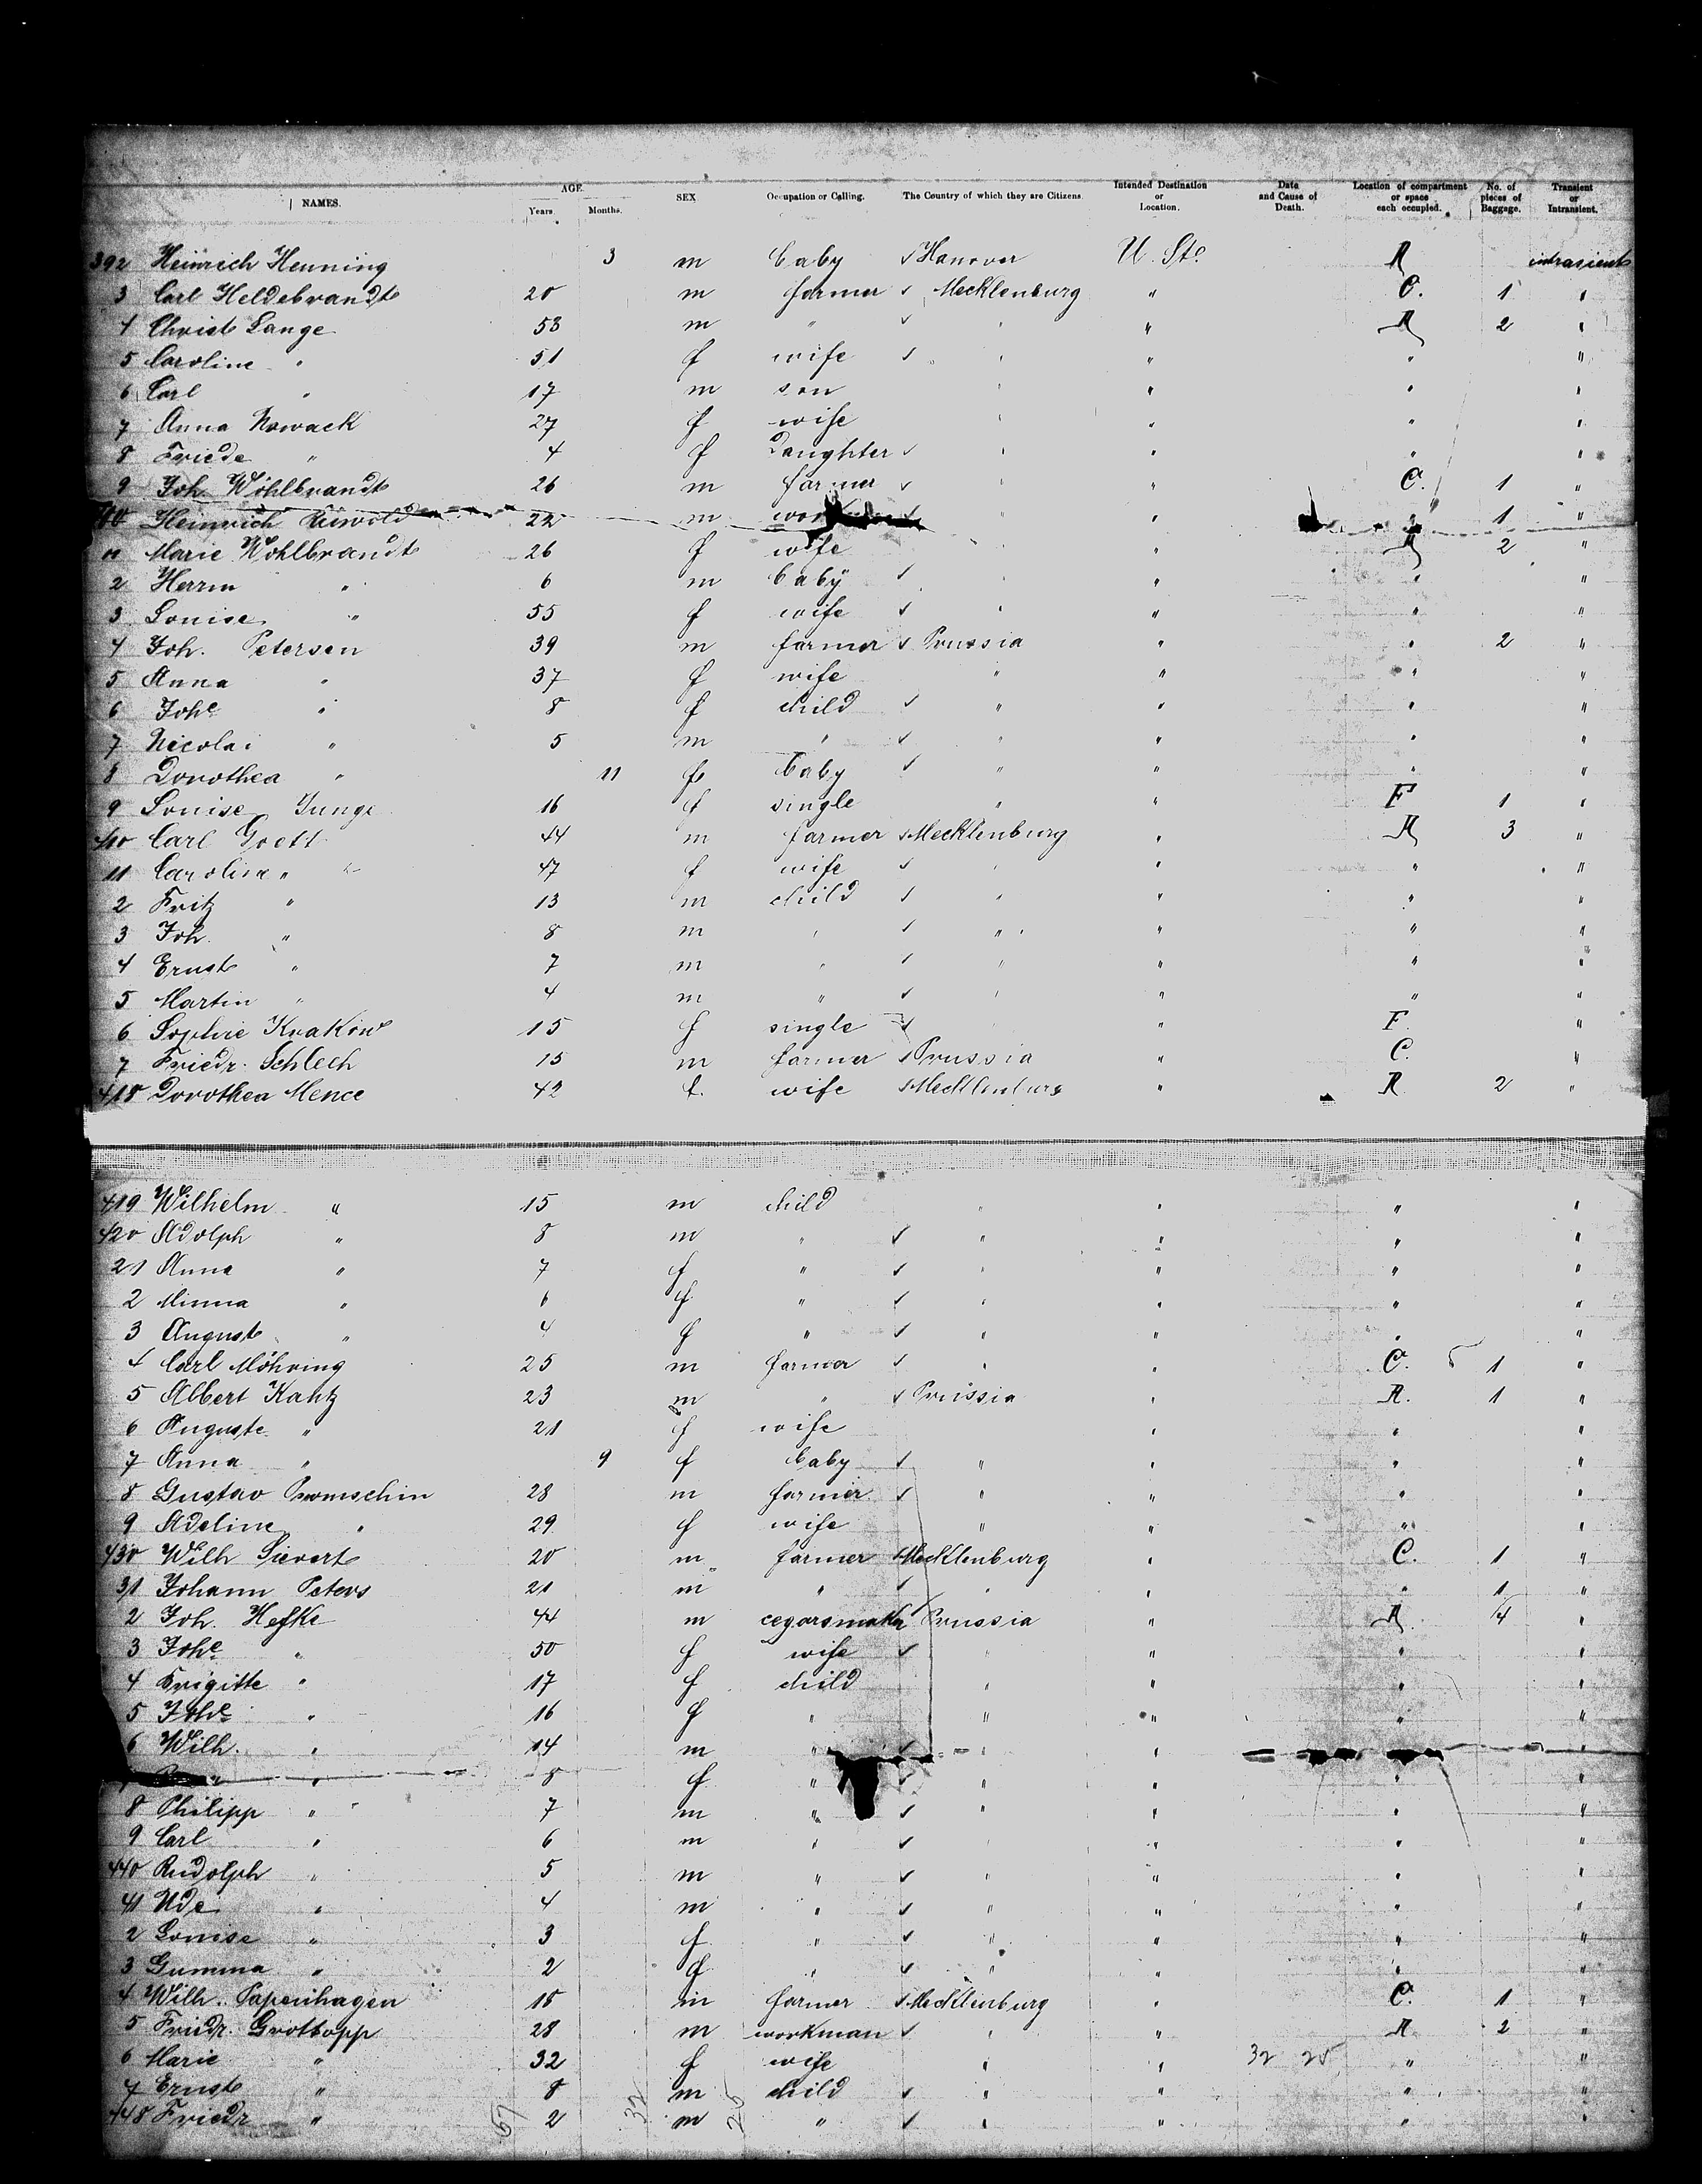 NAMES. AGE. Years. Months. SEX Occupation or Calling. The Country of which they are Citizens. Intended Destination or Location. Date and Cause of Death. Location of compartment or space each occupied. No. of pieces of Baggage. Transient or Intransient.
392 Heinrich Henning 3 m baby ✓ Hanover U. Sts. A intrasient
3 Carl Heldebrandt 20 m farmer ✓ Mecklenburg " C. 1 "
4 Christ Lange 53 m " ✓ " " A 2 "
5 Caroline " 51 f wife ✓ " " " "
6 Carl " 17 m son " " " "
7 Anna Nowack 27 f wife " " " "
8 Friede " 4 f Daughter ✓ " " " "
9 Joh. Wöhlbrandt 26 m farmer ✓ " C. 1 "
400 Heinrich 22 m " " " 1 "
11 Marie Wohlbrandt 26 f wife " A 2 "
2 Herrm " 6 m baby ✓ " " " "
3 Louise " 55 f wife ✓ " " " "
4 Joh. Petersen 39 m farmer ✓ Prussia " " 2 "
5 Anna " 37 f wife " " " "
6 Johe " 8 f child ✓ " " " "
7 Nicolai " 5 m " ✓ " " " "
8 Dorothea " 11 f baby ✓ " " " "
9 Louise Junge 16 f single " " F 1 "
410 Carl Goett 44 m farmer ✓ Mecklenburg " A 3 "
11 Carolina " 47 f wife ✓ " " " "
2 Fritz " 13 m child ✓ " " " "
3 Joh. " 8 m " ✓ " " " "
4 Ernst " 7 m " ✓ " " " "
5 Martin " 4 m " ✓ " " " "
6 Sophie Krakow 15 f single ✓ " " F. "
7 Friedr. Schlech 15 m farmer ✓ Prussia " C. "
418 Dorothea Mence 42 f. wife ✓ Mecklenburg " A 2 "
419 Wilhelm " 15 m child " " " "
420 Adolph " 8 m " ✓ " " " "
21 Anna " 7 f " ✓ " " " "
2 Minna " 6 f " ✓ " " " "
3 Auguste " 4 f " ✓ " " " "
4 Carl Möhring 25 m farmer ✓ " " C. 1 "
5 Albert Kantz 23 m " ✓ Prussia " A. 1 "
6 Auguste " 21 f wife " " "
7 Anna " 9 f baby ✓ " " " "
8 Gustav 28 m farmer ✓ " " " "
9 Adeline " 29 f wife " " " "
430 Wilh Sievert 20 m farmer ✓ Mecklenburg " C. 1 "
31 Johann Peters 21 m " ✓ " " " 1 "
2 Joh. Hefke 44 m cegarsmaker Prussia " A 4 "
3 Johe " 50 f wife ✓ " " " "
4 Brigitte " 17 f child " " " "
5 Johe " 16 f " " " " "
6 Wilh. " 14 m " ✓ " " " "
" 8 f " ✓ " " " "
8 Philipp " 7 m " ✓ " " " "
9 Carl " 6 m " ✓ " " " "
440 Rudolph " 5 m " ✓ " " " "
41 Ude " 4 m " ✓ " " " "
2 Louise " 3 f " ✓ " " " "
3 Gumma " 2 f " ✓ " " " "
4 Wilh. Papenhagen 18 m farmer ✓ Mecklenburg " C. 1 "
5 Friedr. Grotkopp 28 m workman ✓ " " A 2 "
6 Marie " 32 f wife " " 32 25 " "
7 Ernst " 8 m child ✓ " " " "
448 Friedr " 2 m " ✓ " " " "
57 32 25